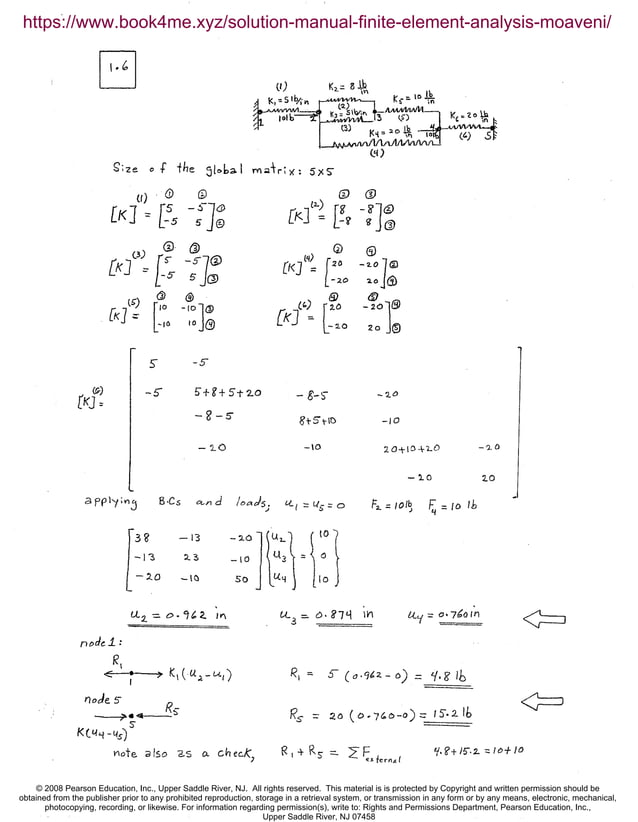 https://www.book4me.xyz/solution-manual-finite-element-analysis-moaveni/
1.6
(1) K₂ = 8 lb/in
K₁ = 5 lb/in (2) K₅ = 10 lb/in
1 10lb 2 K₃ = 5 lb/in 3 (5) K₆ = 20 lb/in
(3) K₄ = 20 lb/in 4 10lb (6) 5
(4)
Size of the global matrix: 5x5
① ② ② ③
[K]⁽¹⁾ = [5 -5]① [K]⁽²⁾ = [8 -8]②
[-5 5]② [-8 8]③
② ③ ② ④
[K]⁽³⁾ = [5 -5]② [K]⁽⁴⁾ = [20 -20]②
[-5 5]③ [-20 20]④
③ ④ ④ ⑤
[K]⁽⁵⁾ = [10 -10]③ [K]⁽⁶⁾ = [20 -20]④
[-10 10]④ [-20 20]⑤
5 -5
[K]⁽ᴳ⁾ = -5 5+8+5+20 -8-5 -20
-8-5 8+5+10 -10
-20 -10 20+10+20 -20
-20 20
applying B.Cs and loads; u₁ = u₅ = 0 F₂ = 10lb, F₄ = 10 lb
[38 -13 -20] {u₂} {10}
[-13 23 -10] {u₃} = {0}
[-20 -10 50] {u₄} {10}
u₂ = 0.962 in u₃ = 0.874 in u₄ = 0.760 in
node 1:
R₁ 1 K₁(u₂-u₁) R₁ = 5 (0.962-0) = 4.8 lb
node 5
5 R₅ R₅ = 20 (0.760-0) = 15.2 lb
K(u₄-u₅)
note also as a check, R₁ + R₅ = ΣF external 4.8+15.2 = 10+10
© 2008 Pearson Education, Inc., Upper Saddle River, NJ. All rights reserved. This material is is protected by Copyright and written permission should be
obtained from the publisher prior to any prohibited reproduction, storage in a retrieval system, or transmission in any form or by any means, electronic, mechanical,
photocopying, recording, or likewise. For information regarding permission(s), write to: Rights and Permissions Department, Pearson Education, Inc.,
Upper Saddle River, NJ 07458